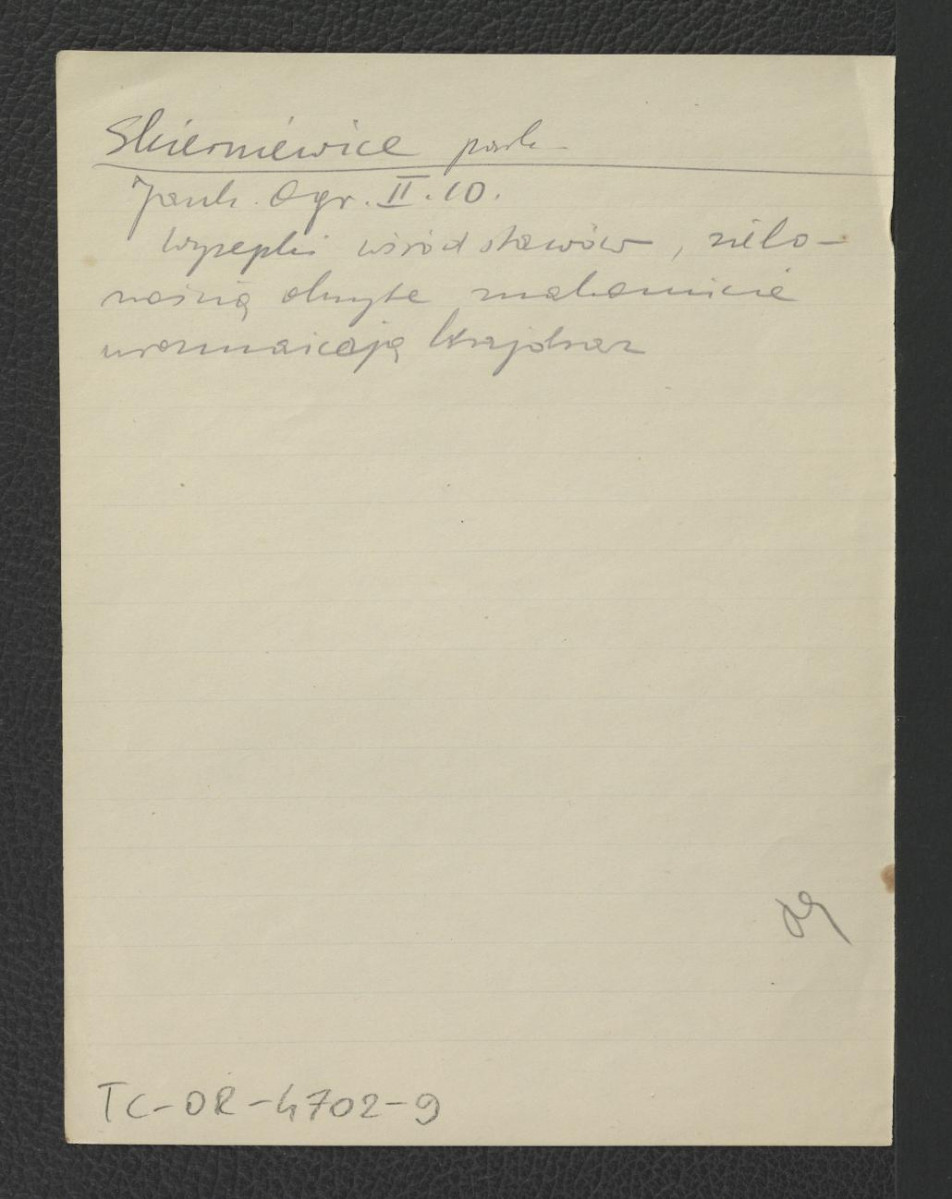 Skierniewice park
Jank. Ogr. II. 10.
Wysepki wśród stawów, zielo-
nością okryte znakomicie
urozmaicają krajobraz
TC-OR-4702-9